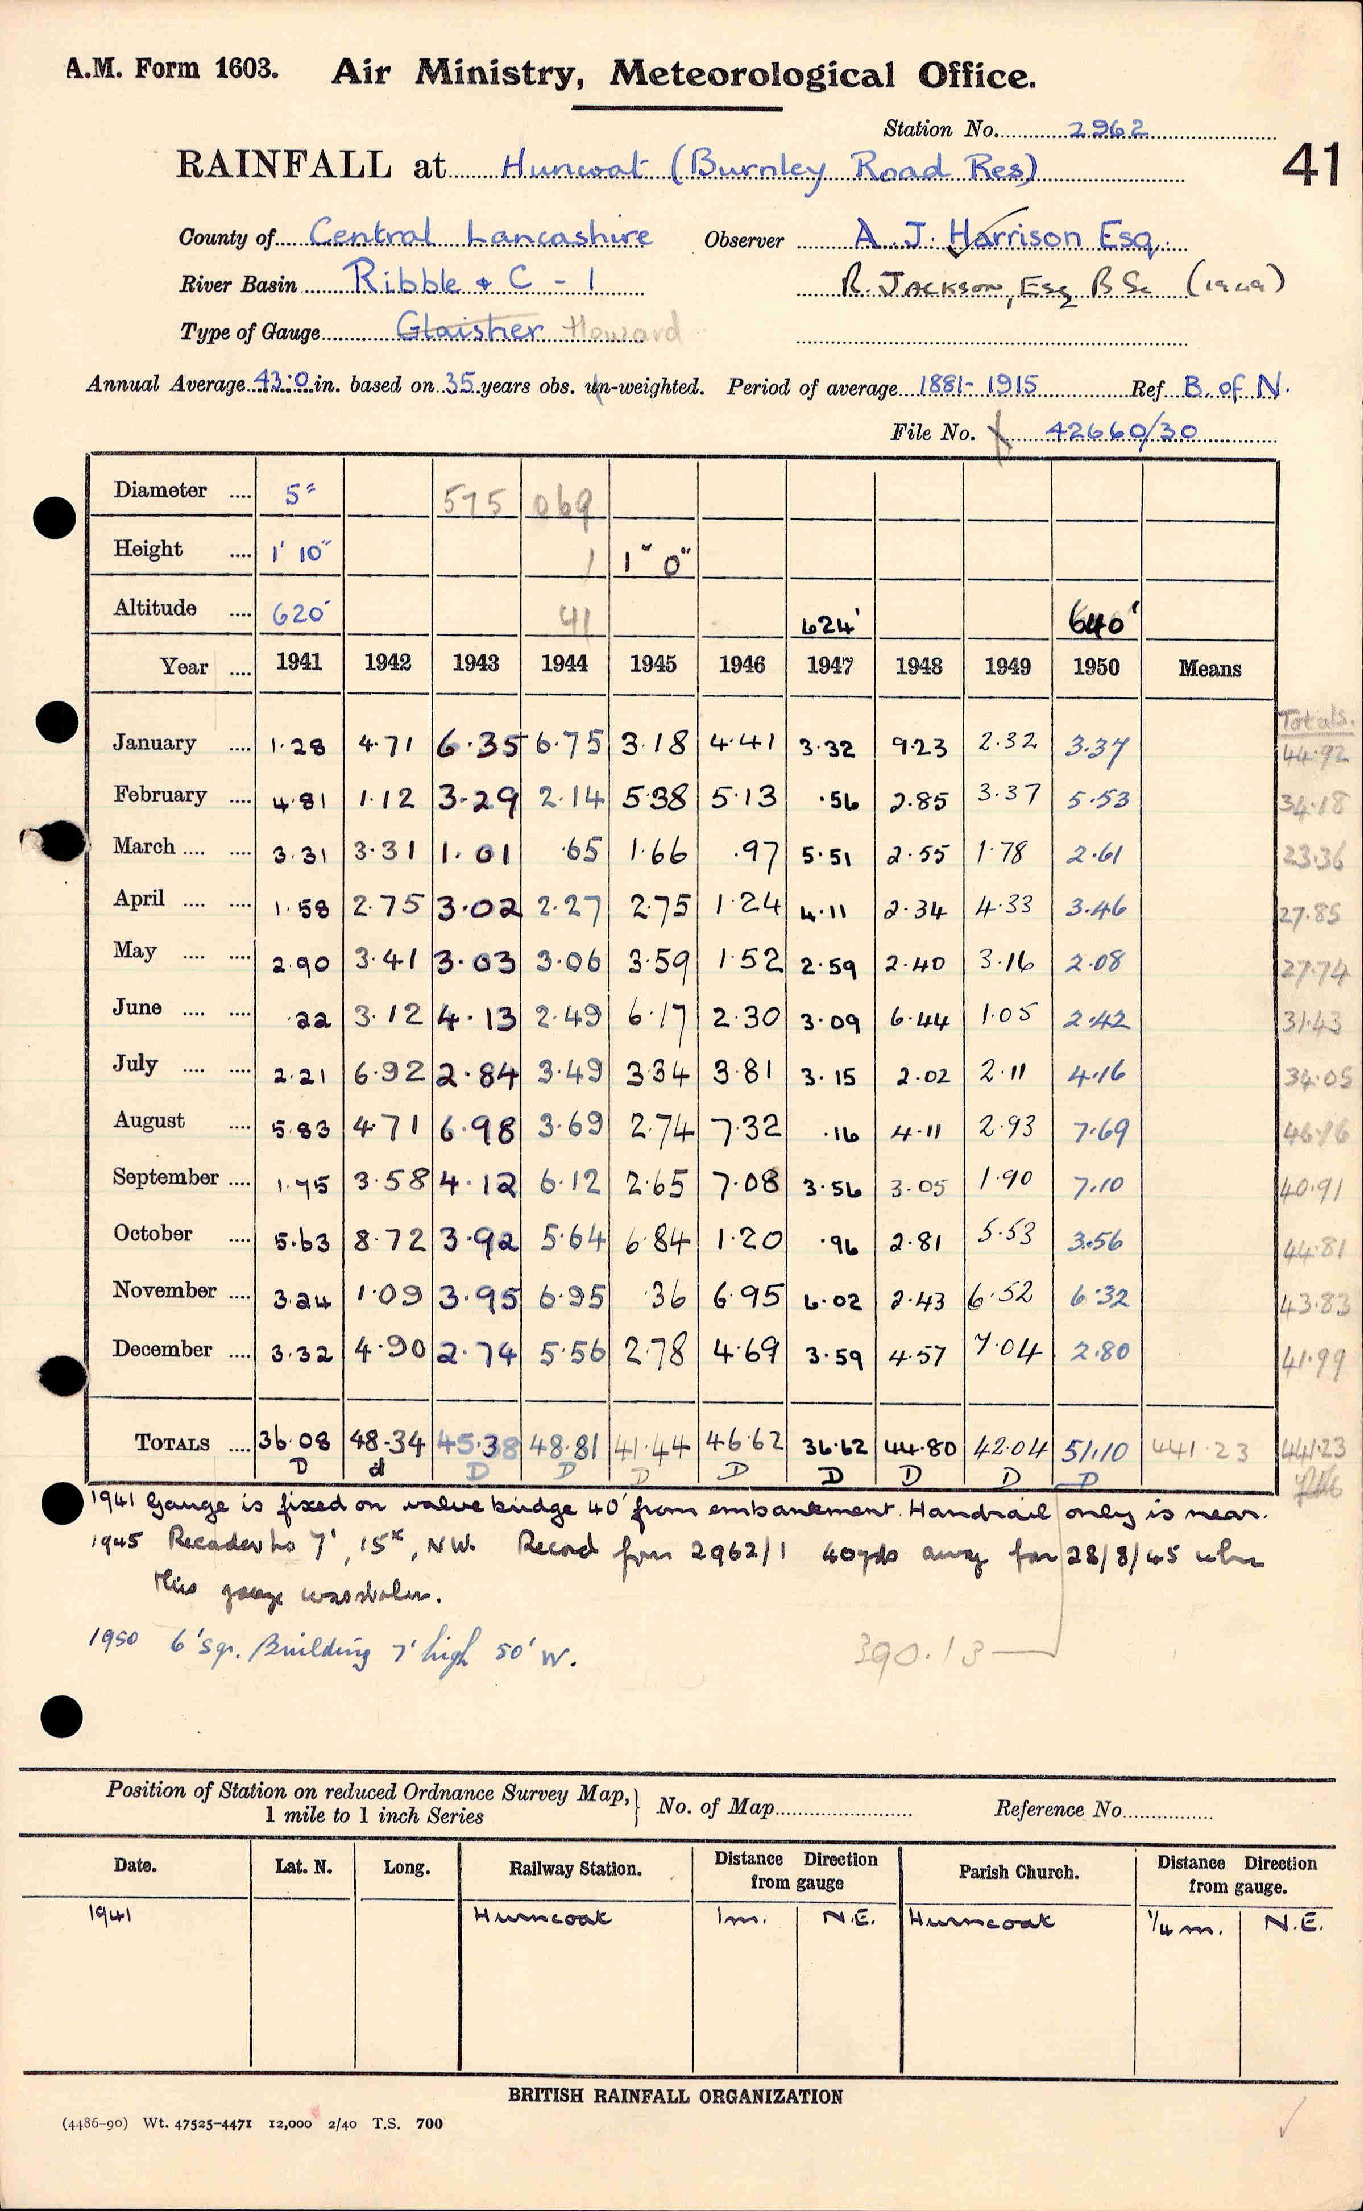 A.M. Form 1603. Air Ministry, Meteorological Office.
Station No. 2962
41
RAINFALL at Huncoat (Burnley Road Res)
County of Central Lancashire Observer A. J. Harrison Esq.
River Basin Ribble + C - 1 R. JACKSON, Esq BSc (1949)
Type of Gauge Glaisher Howard
Annual Average 43.0 in. based on 35 years obs. un-weighted. Period of average 1881-1915 Ref B. of N.
File No. 42660/30
Diameter .... 5" 575 069
Height .... 1' 10" 1 1' 0"
Altitude .... 620' 41 624' 640'
Year .... 1941 1942 1943 1944 1945 1946 1947 1948 1949 1950 Means
Totals.
January .... 1.28 4.71 6.35 6.75 3.18 4.41 3.32 9.23 2.32 3.37 44.92
February .... 4.81 1.12 3.29 2.14 5.38 5.13 .56 2.85 3.37 5.53 34.18
March .... .... 3.31 3.31 1.01 .65 1.66 .97 5.51 2.55 1.78 2.61 23.36
April .... .... 1.58 2.75 3.02 2.27 2.75 1.24 4.11 2.34 4.33 3.46 27.85
May .... .... 2.90 3.41 3.03 3.06 3.59 1.52 2.59 2.40 3.16 2.08 27.74
June .... .... .22 3.12 4.13 2.49 6.17 2.30 3.09 6.44 1.05 2.42 31.43
July .... .... 2.21 6.92 2.84 3.49 3.34 3.81 3.15 2.02 2.11 4.16 34.05
August .... 5.83 4.71 6.98 3.69 2.74 7.32 .16 4.11 2.93 7.69 46.16
September .... 1.75 3.58 4.12 6.12 2.65 7.08 3.56 3.05 1.90 7.10 40.91
October .... 5.63 8.72 3.92 5.64 6.84 1.20 .96 2.81 5.53 3.56 44.81
November .... 3.24 1.09 3.95 6.95 .36 6.95 6.02 2.43 6.52 6.32 43.83
December .... 3.32 4.90 2.74 5.56 2.78 4.69 3.59 4.57 7.04 2.80 41.99
TOTALS .... 36.08 48.34 45.38 48.81 41.44 46.62 36.62 44.80 42.04 51.10 441.23 441.23
D d D D D D D D D D
1941 Gauge is fixed on valve bridge 40' from embankment. Handrail only is near.
1945 Recorder ho 7', 15", NW. Record from 2962/1 40yds away for 28/8/45 when
this gauge was stolen.
1950 6' Sqr. Building 7' high 50' W.
390.13
Position of Station on reduced Ordnance Survey Map, 1 mile to 1 inch Series No. of Map Reference No.
Date. Lat. N. Long. Railway Station. Distance Direction from gauge Parish Church. Distance Direction from gauge.
1941 Huncoat 1m. N.E. Huncoat 1/4 m. N.E.
BRITISH RAINFALL ORGANIZATION
(4486-90) Wt. 47525-4471 12,000 2/40 T.S. 700